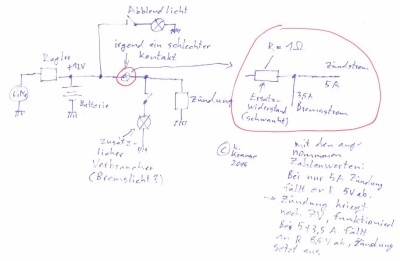 Abblendlicht
irgend ein schlechter
Kontakt
Regler
+12V
Batterie
Zündung
Zusätz-
licher
Verbraucher
(Bremslicht?)
R = 1Ω
Zündstrom
5 A
3,5A
Bremsstrom
Ersatz-
widerstand
(schwankt)
Kramer
mit den ange-
nommenen
Zahlenwerten:
Bei nur 5A Zündung
fällt an R 5V ab.
→ Zündung kriegt
noch 7V, funktioniert
Bei 5+3,5 A fällt
an R 8,5V ab, Zündung
setzt aus.